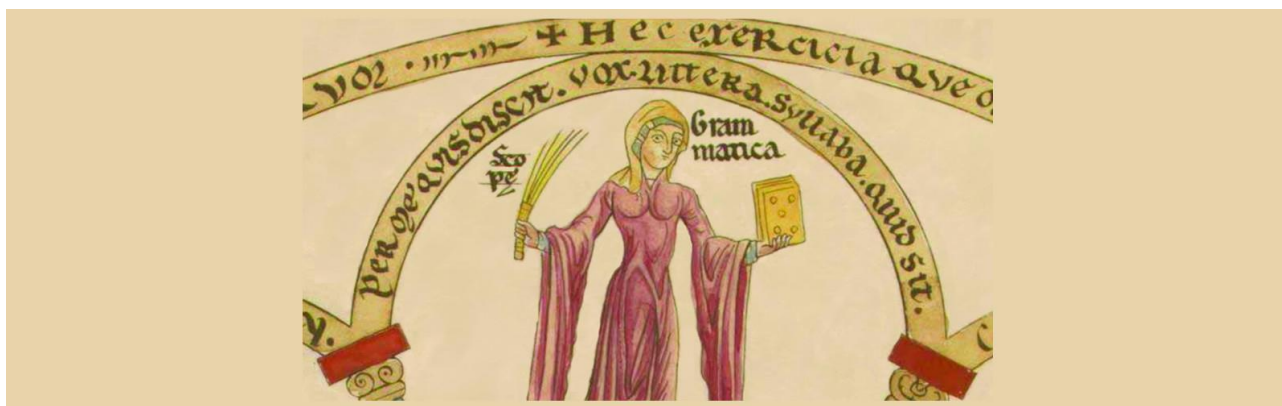 ✝ Hec exercicia que
per me quis discit. vox. littera. syllaba. quid sit.
Sco
pe
Gram
matica